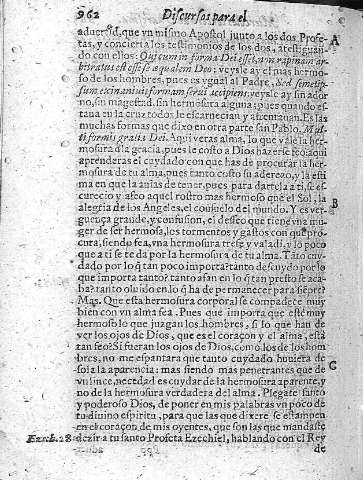 962 Discursos para el
aduertid, que vn mismo Apostol junto a los dos Profe-
tas, y concierta los testimonios de los dos, atestiguan-
do con ellos: Qui cum in forma Dei esset, non rapinam ar-
bitratus est esse se æqualem Deo: veysle ay el mas hermo-
so de los hombres, pues es ygual al Padre, Sed semetip-
sum exinaniuit formam serui accipiens: veysle ay sin ador
no, sin magestad, sin hermosura alguna: pues quando es-
taua en la cruz todos le escarnecian y afrentauan. Es las
muchas formas que dixo en otra parte san Pablo, Mul-
tiformis gratia Dei. Aqui veras alma, lo que vale la her-
mosura de la gracia, pues le costò a Dios hazerse feo: aqui
aprenderas el cuydado con que has de procurar la her-
mosura de tu alma, pues tanto costò su aderezo, y la esti
ma en que la auias de tener, pues para dartela a ti, se es-
curecio y afeo aquel rostro mas hermoso que el Sol, la
alegria de los Angeles, el consuelo del mundo. Y es ver-
guença grande, y confusion, el desseo que tiene vna mu-
ger de ser hermosa, los tormentos y gastos con que pro-
cura, siendo fea, vna hermosura tresse y valadi, y lo poco
que a ti se te da por la hermosura de tu alma. Tãto cuy-
dado por lo q̃ tan poco importa? tanto descuydo por lo
que importa tanto? tanto afan en lo q̃ tan presto se aca-
ba? tanto oluido en lo q̃ ha de permanecer para siẽpre?
Mas. Que esta hermosura corporal se compadece muy
bien con vn alma fea. Pues que importa que estè muy
hermoso lo que juzgan los hombres, si lo que han de
ver los ojos de Dios, que es el coraçon y el alma, està
tan feo? Si fueran los ojos de Dios, como los de los hom
bres, no me espantara que tanto cuydado huuiera de
sola la aparencia: mas siendo mas penetrantes que de
vn lince, necedad es cuydar de la hermosura aparente, y
no de la hermosura verdadera del alma. Plegate santo
y poderoso Dios, de poner en mis palabras vn poco de
tu diuino espiritu, para que las que dixere se estampen
en el coraçon de mis oyentes, que son las que mandaste
Ezech. 28 dezir a tu santo Profeta Ezechiel, hablando con el Rey
de
A
B
C